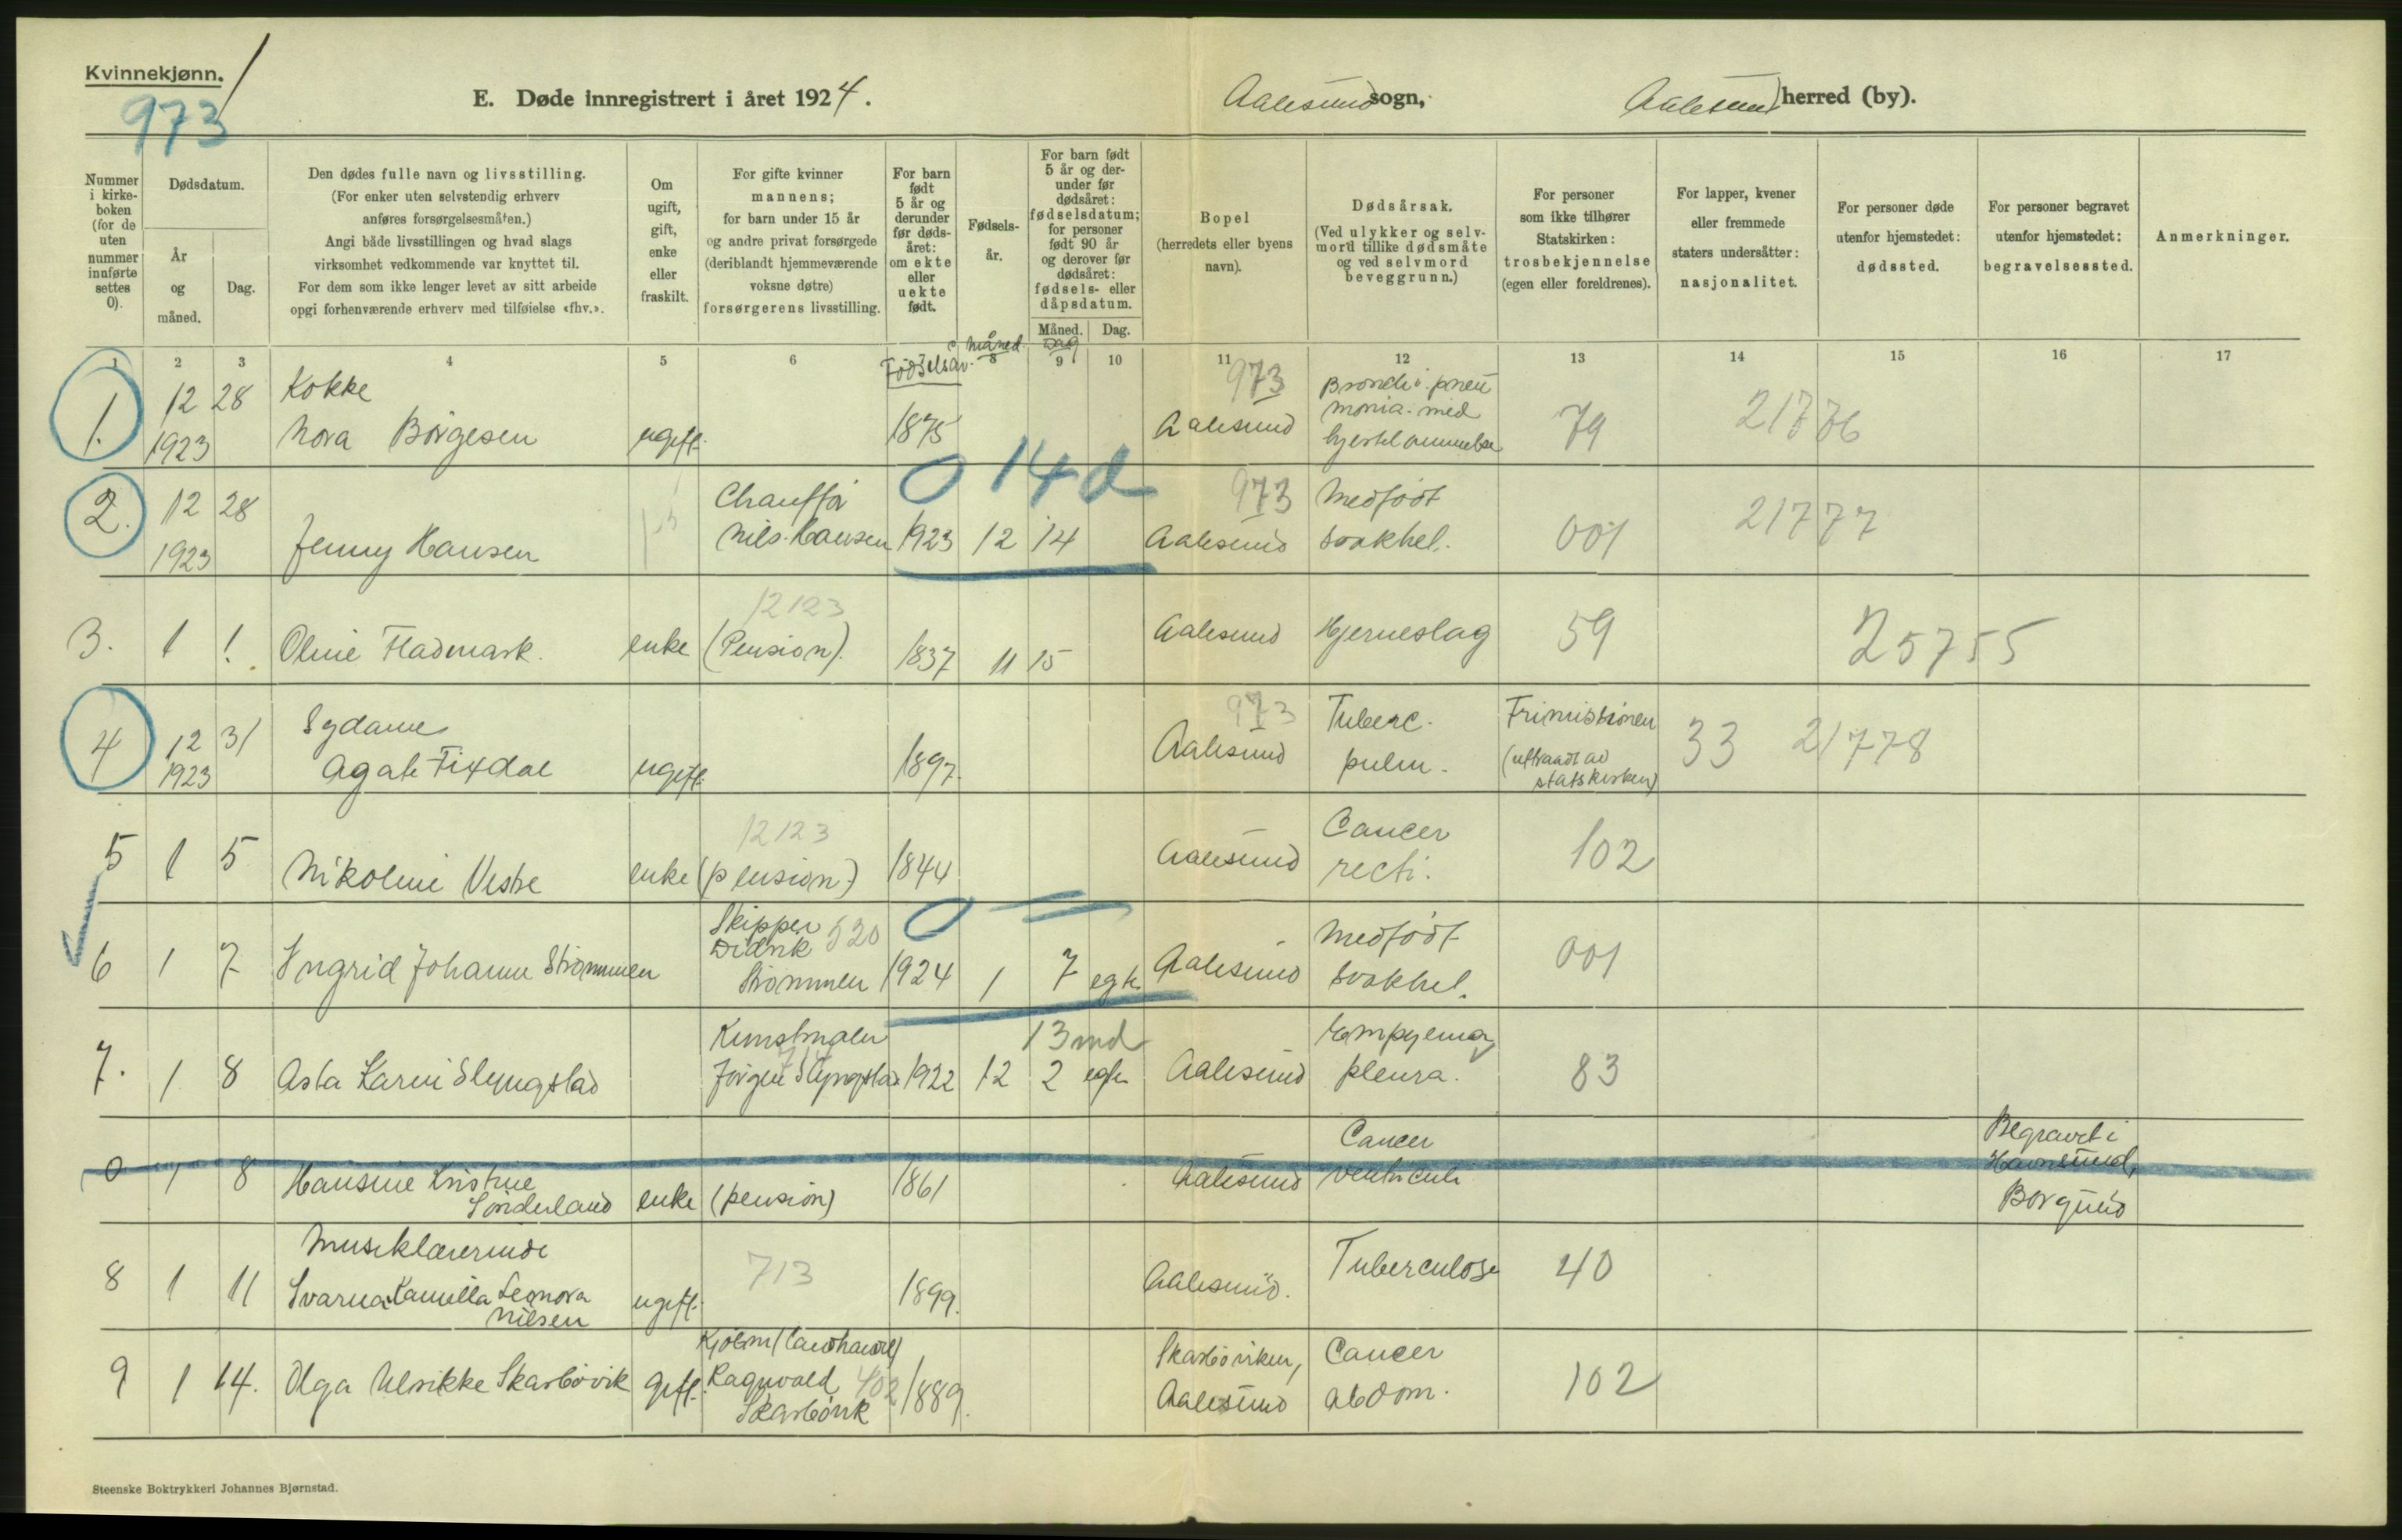 Kvinnekjønn.
973
E. Døde innregistrert i året 1924.
Aalesund sogn, Aalesund herred (by).
Nummer i kirkeboken (for de uten nummer innførte settes 0).
Dødsdatum.
År og måned.
Dag.
Den dødes fulle navn og livsstilling.
(For enker uten selvstendig erhverv anføres forsørgelsesmåten.)
Angi både livsstillingen og hvad slags virksomhet vedkommende var knyttet til.
For dem som ikke lenger levet av sitt arbeide opgi forhenværende erhverv med tilføielse «fhv.».
Om ugift, gift, enke eller fraskilt.
For gifte kvinner mannens; for barn under 15 år og andre privat forsørgede (deriblandt hjemmeværende voksne døtre) forsørgerens livsstilling.
For barn født 5 år og derunder før dødsåret: om ekte eller uekte født.
Fødselsår.
For barn født 5 år og derunder før dødsåret: fødselsdatum; for personer født 90 år og derover før dødsåret: fødsels- eller dåpsdatum.
Måned. Dag.
Bopel (herredets eller byens navn).
Dødsårsak.
(Ved ulykker og selvmord tillike dødsmåte og ved selvmord beveggrunn.)
For personer som ikke tilhører Statskirken: trosbekjennelse (egen eller foreldrenes).
For lapper, kvener eller fremmede staters undersåtter: nasjonalitet.
For personer døde utenfor hjemstedet: dødssted.
For personer begravet utenfor hjemstedet: begravelsessted.
Anmerkninger.
1 2 3 4 5 6 8 9 10 11 12 13 14 15 16 17
Fødselsår. Måned. Dag
1. 12 28 Kokke 973 Bronchi. pneu
monia. med
1923 Nora Børgesen ugift. 1875 Aalesund 79 21776
0 14 d
2. 12 28 Chauffør 973 Medfødt
1923 Jenny Hansen Nils Hansen 1923 12 14 Aalesund svakhet. 001 21777
12123
3. 1 1 Oline Fladmark. enke (Pension). 1837 11 15 Aalesund Hjerneslag 59 25755
4 12 31 Sydame 973 Tuberc. Frimissionen
1923 Agate Fixdal ugift. 1897. Aalesund pulm. (utraadt av statskirken) 33 21778
12123
5 1 5 Nikoline Vestre enke (pension) 1844 Aalesund Cancer recti. 102
0
Skipper 520
6 1 7 Ingrid Johanne Strømmen Didrik Strømmen 1924 1 7 egte. Aalesund Medfødt svakhet. 001
Kunstmaler 13 md
7. 1 8 Asta Karin Slyngstad Jørgen Slyngstad 1922 12 2 egte Aalesund Empyema pleura. 83
0 1 8 Hansine Kristine Sønderland enke (pension) 1861 Aalesund Cancer ventriculi Begravet i Havnsund, Borgund
Musiklærerinde
8 1 11 Svarna Kamilla Leonora Nilsen ugift. 713 1899. Aalesund. Tuberculose 40
9 1 14. Olga Ulrikke Skarbøvik gift. Kjøbm (landhandl) Ragnvald Skarbøvik 402 1889. Skarbøviken, Aalesund Cancer abdom. 102
Steenske Boktrykkeri Johannes Bjørnstad.